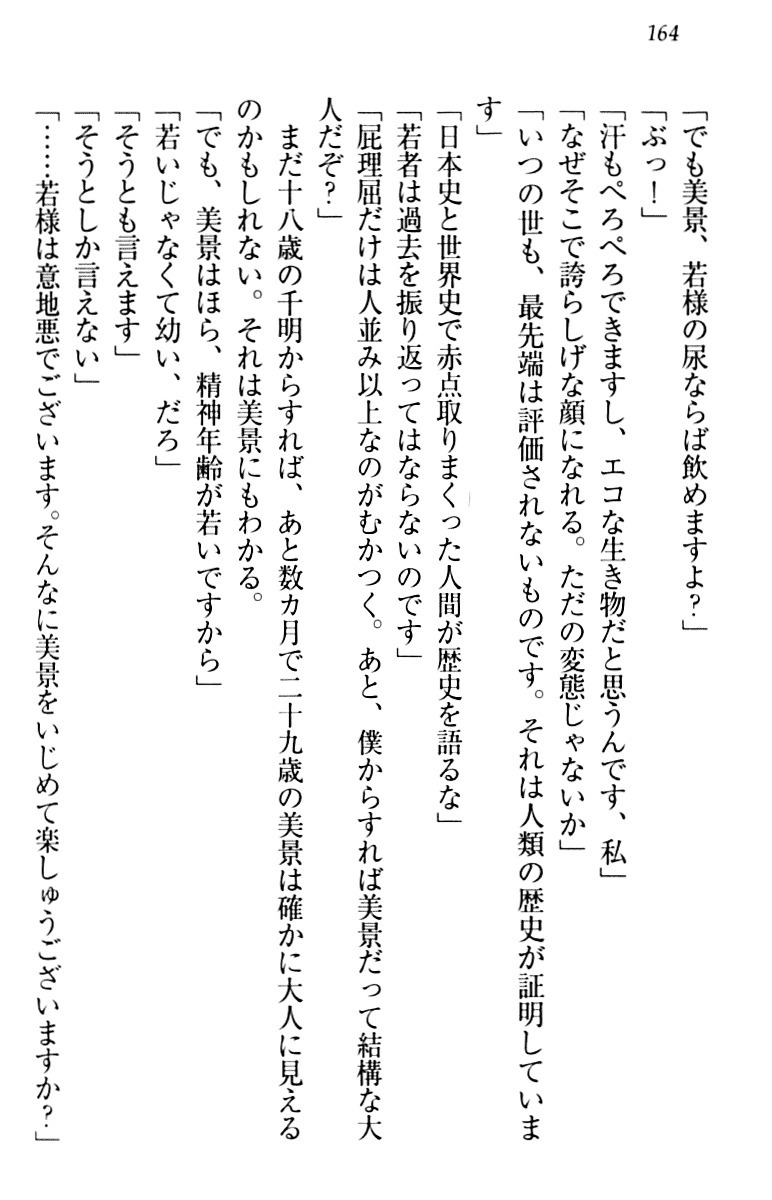 164
「でも美景、若様の尿ならば飲めますよ?」
「ぶっ!」
「汗もぺろぺろできますし、エコな生き物だと思うんです、私」
「なぜそこで誇らしげな顔になれる。ただの変態じゃないか」
「いつの世も、最先端は評価されないものです。それは人類の歴史が証明していま
す」
「日本史と世界史で赤点取りまくった人間が歴史を語るな」
「若者は過去を振り返ってはならないのです」
「屁理屈だけは人並み以上なのがむかつく。あと、僕からすれば美景だって結構な大
人だぞ?」
まだ十八歳の千明からすれば、あと数カ月で二十九歳の美景は確かに大人に見える
のかもしれない。それは美景にもわかる。
「でも、美景はほら、精神年齢が若いですから」
「若いじゃなくて幼い、だろ」
「そうとも言えます」
「そうとしか言えない」
「……若様は意地悪でございます。そんなに美景をいじめて楽しゅうございますか?」